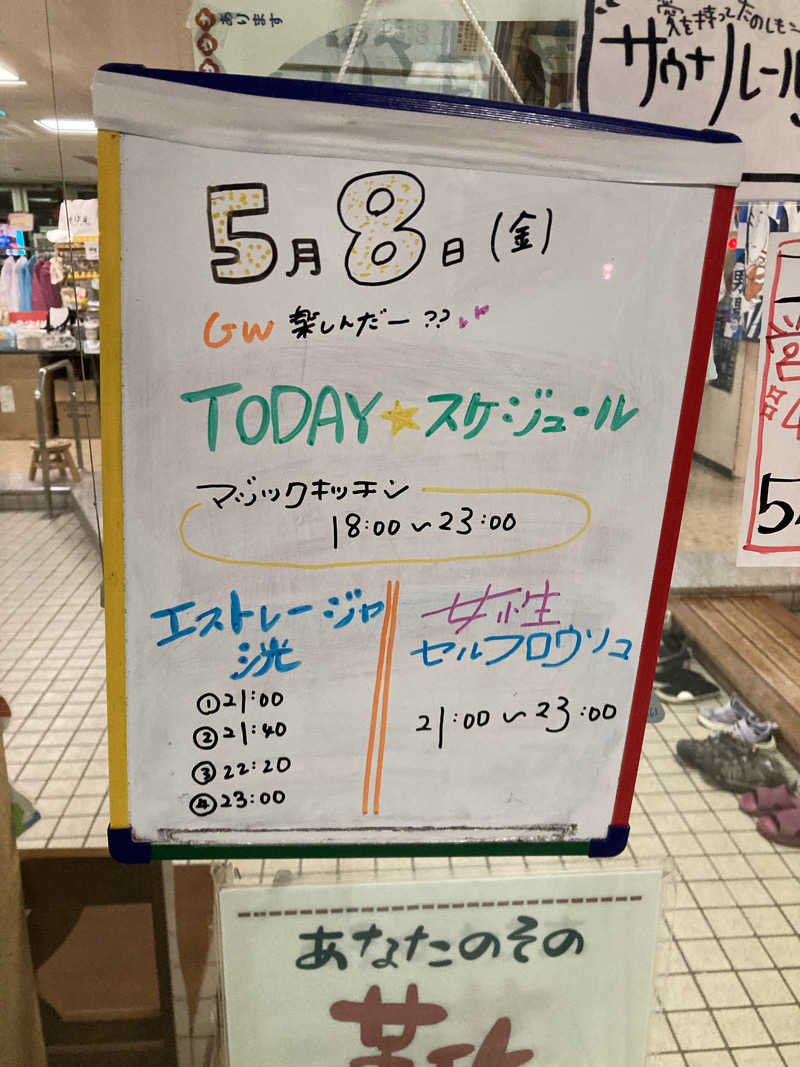 あります
愛を持ってたのしもう
サウナルール
5月8日(金)
GW 楽しんだー??
TODAY★スケジュール
マジックキッチン
18:00～23:00
エストレージャ
洸
①21:00
②21:40
③22:20
④23:00
女性
セルフロウリュ
21:00～23:00
あなたのその
靴